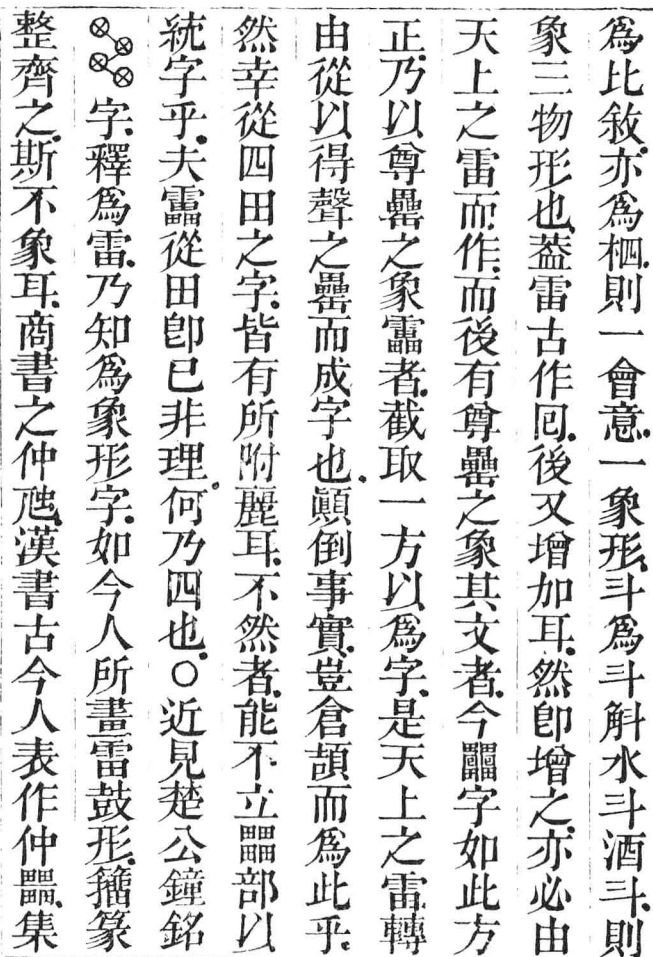 爲比敘.亦爲柶.則一會意.一象形.斗爲斗斛水斗酒斗.則
象三物形也.葢雷古作回.後又增加耳.然卽增之.亦必由
天上之雷而作.而後有尊罍之象其文者.今畾字如此方
正.乃以尊罍之象靁者.截取一方以爲字.是天上之雷.轉
由從以得聲之罍而成字也.顚倒事實.豈倉頡而爲此乎.
然幸從四田之字.皆有所附麗耳.不然者.能不立部以
統字乎.夫靁從田卽已非理.何乃四也.○近見楚公鐘銘
字.釋爲雷.乃知爲象形字.如今人所畫雷鼓形.籒篆
整齊之.斯不象耳.商書之仲虺.漢書古今人表作仲.集